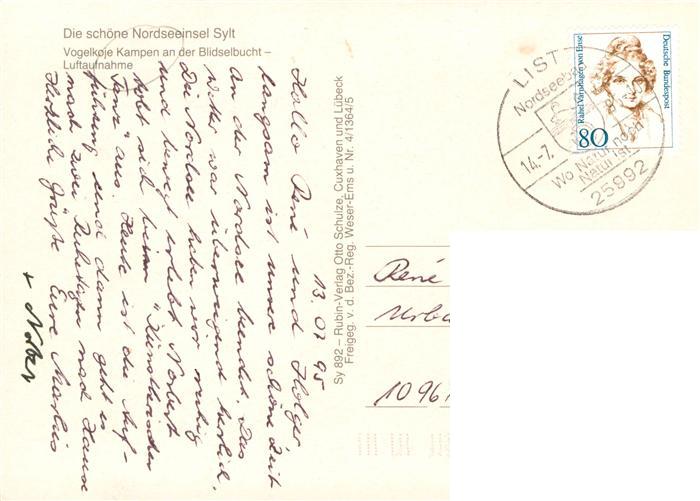 Die schöne Nordseeinsel Sylt
Vogelkoje Kampen an der Blidselbucht –
Luftaufnahme
13.07.95
Hallo René und Holger
langsam ist unser schöne Zeit
an der Nordsee beendet. Das
Wetter war überwiegend herrlich.
Die Nordsee haben wir ruhig
und bewegt erlebt. Norbert
tobt sich beim "Künstlerischen
Tanz" aus. Heute ist die Auf-
führung und dann geht es
nach zwei Ruhetagen nach Hause
Herzliche Grüße Eure Marlies
+ Norbert
Sy 892 – Rubin-Verlag Otto Schulze, Cuxhaven und Lübeck
Freigeg. v. d. Bez.-Reg. Weser-Ems u. Nr. 4/1364/5
Deutsche Bundespost
Rahel Varnhagen von Ense
80
LIST
Nordseeb
14.-7.
Wo Natur noch
Natur ist
25992
René
Urba
1096